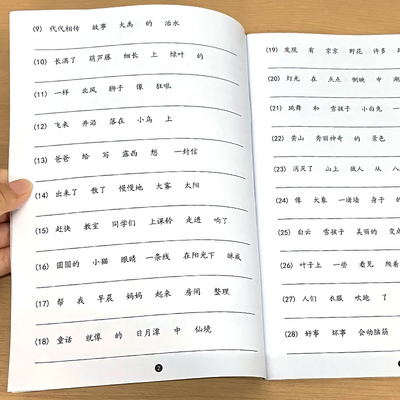 (9) 代代相传 故事 大禹 的 治水
(10) 长满了 葫芦藤 细长 上 绿叶 的
(11) 一样 北风 狮子 像 狂吼
(12) 飞来 井沿 落在 小鸟 上
(13) 爸爸 给 写 露西 想 一封信
(14) 出来了 散了 慢慢地 大雾 太阳
(15) 赶快 教室 同学们 上课铃 走进 响了
(16) 圆圆的 小猫 眼睛 一条线 在阳光下 眯成
(17) 帮 我 早晨 妈妈 起来 房间 整理
(18) 童话 就像 的 日月潭 中 仙境
2
(19) 发现 有 京京 野花 许多
(20) 灯光 在 点点 倒映 中
(21) 跳舞 和 雪孩子 小白兔
(22) 黄山 秀丽神奇 的 景色
(23) 消灭了 山上 敌人 从
(24) 像 大象 一堵墙 身子
(25) 白云 雪孩子 美丽的
(26) 叶子上 一些 看见 爬着
(27) 人们 衣服 吹跑 了
(28) 好事 坏事 会动脑筋